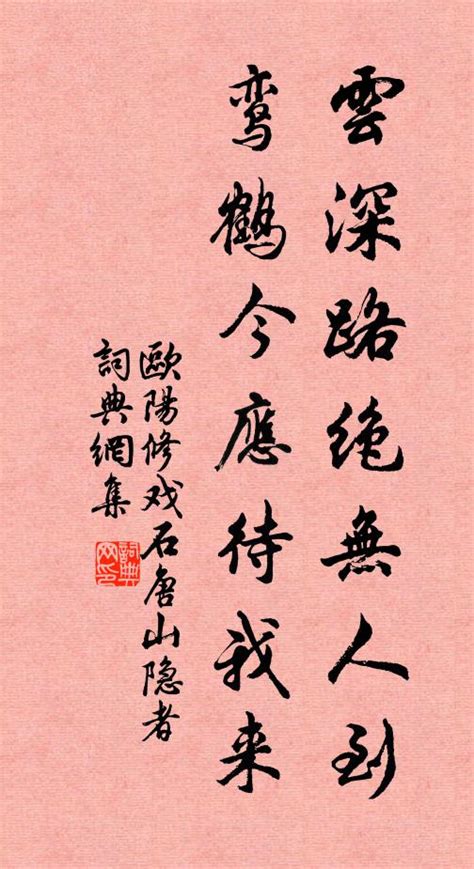 雲深路絶無人到
鸾鶴今應待我来
歐陽修戏石唐山隐者
詞典網集
詞典网印